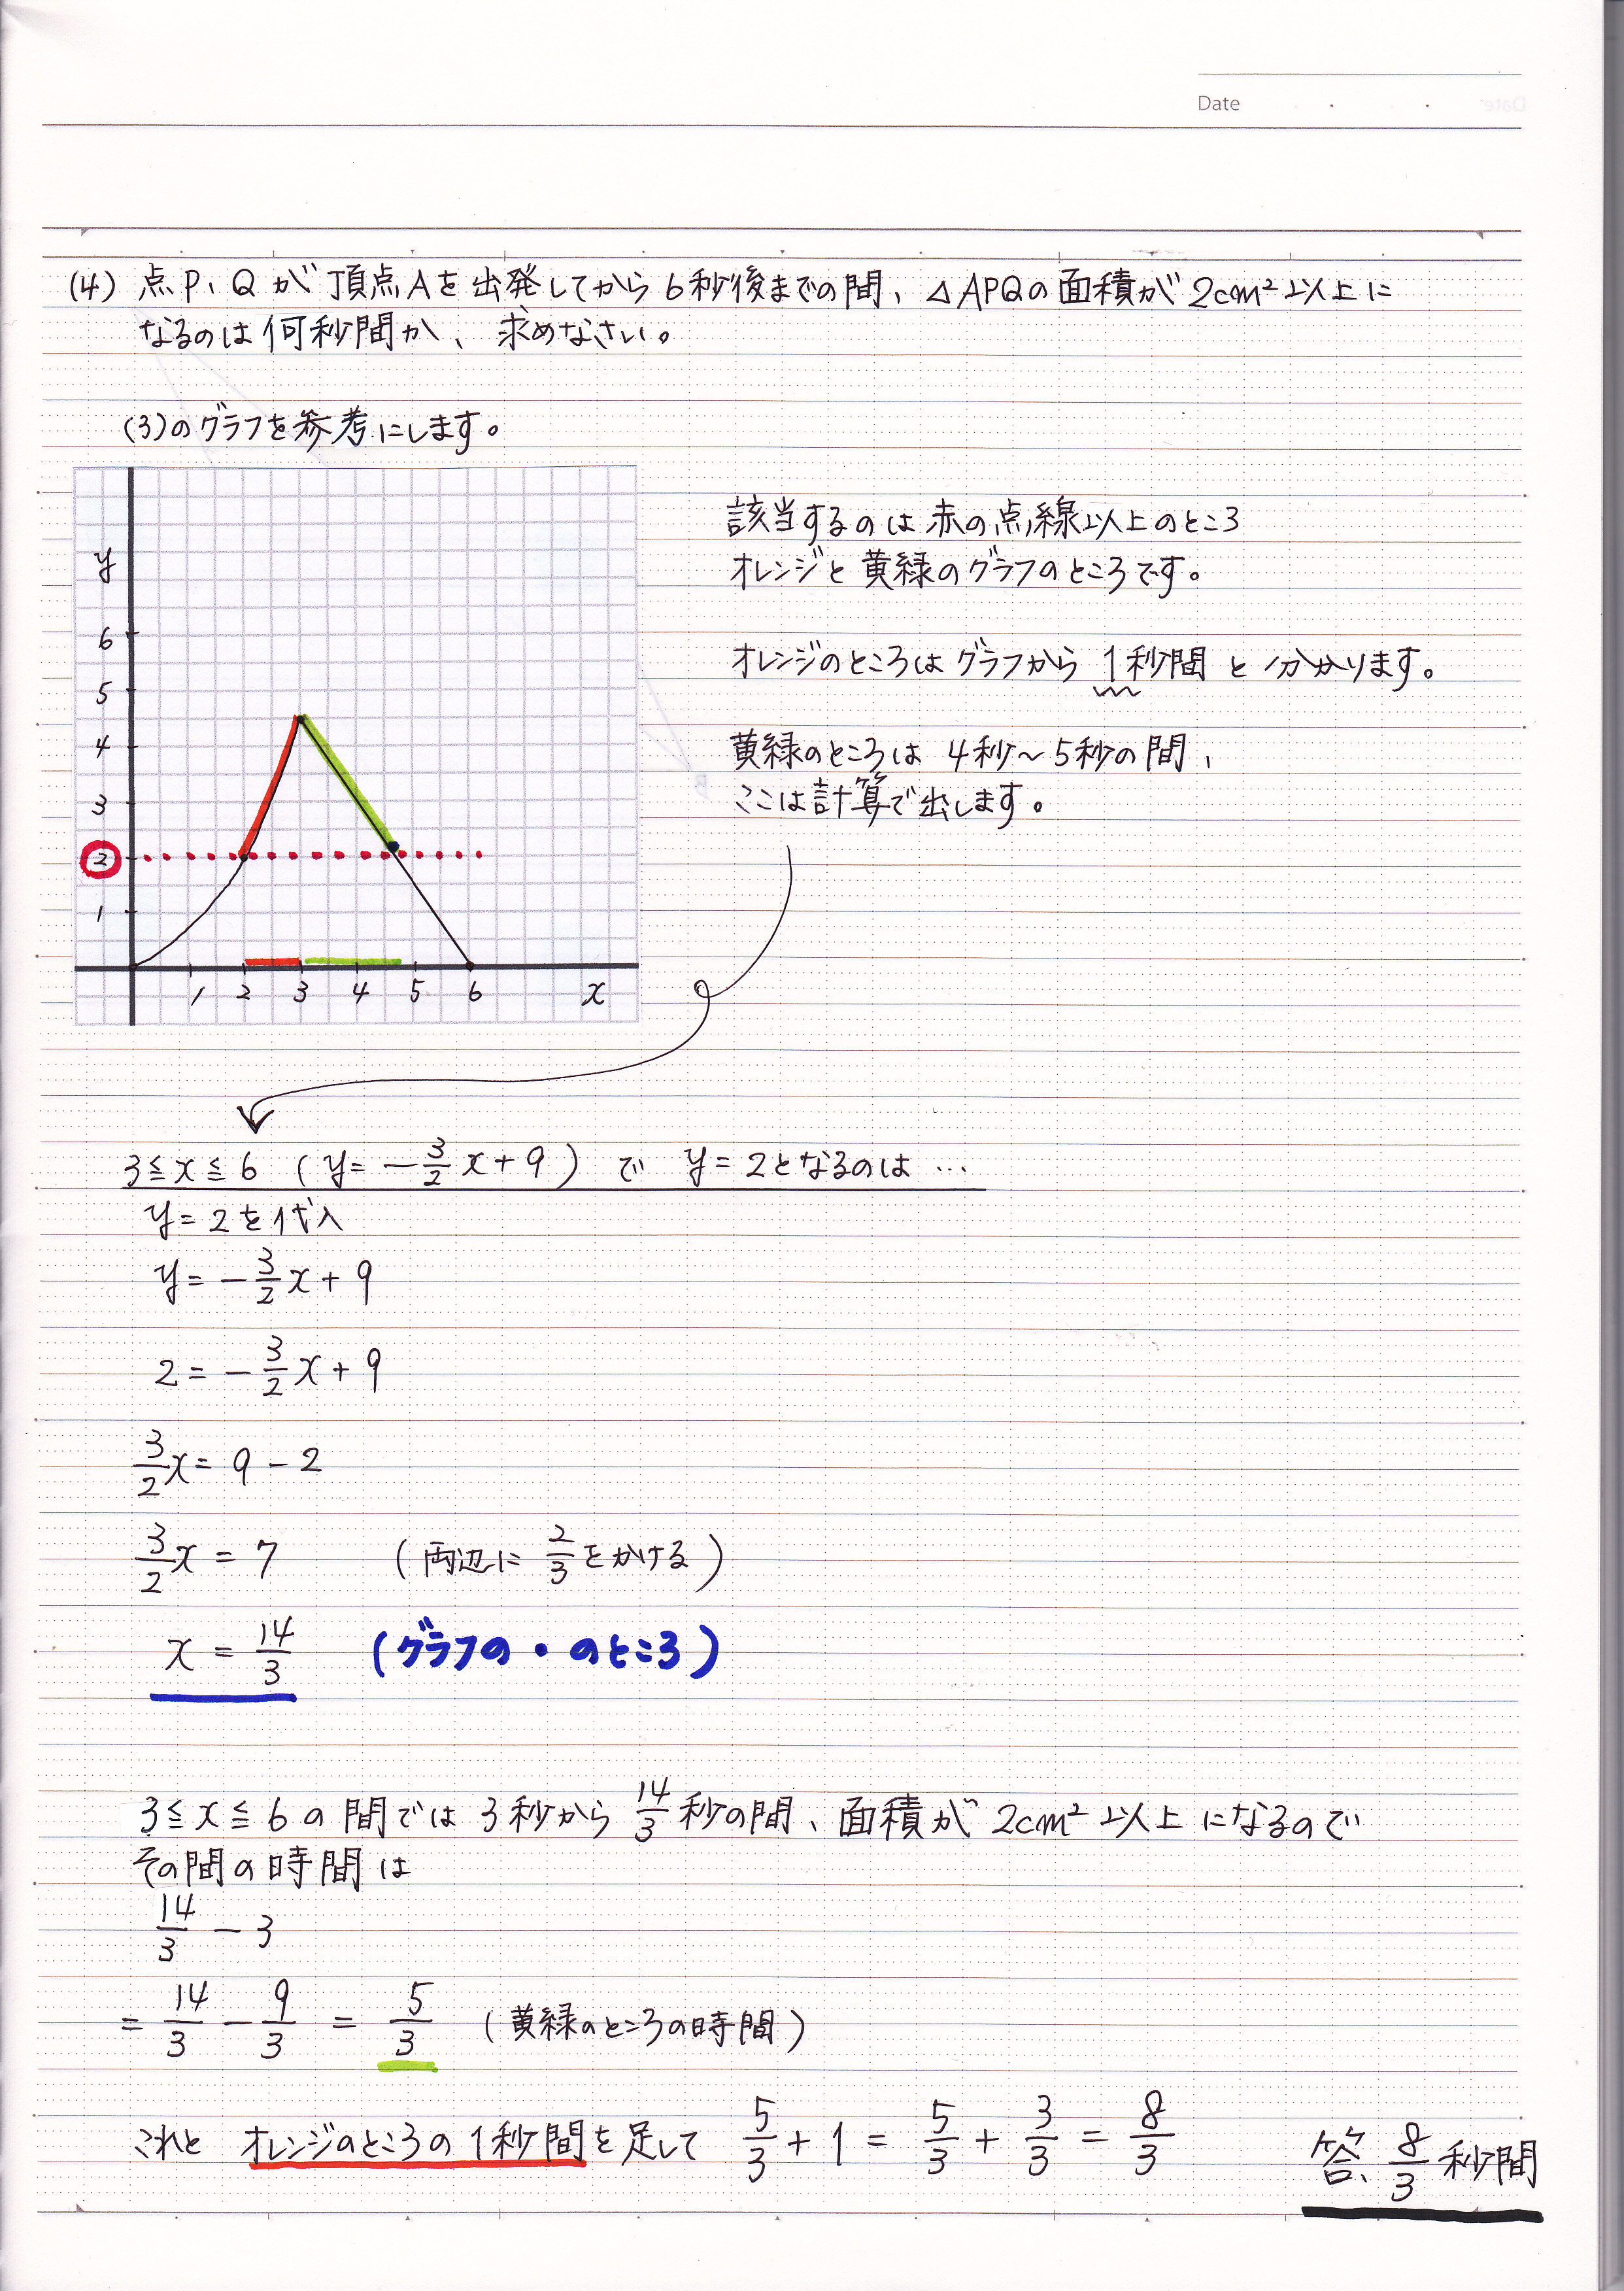 Date
(4) 点P、Qが頂点Aを出発してから6秒後までの間、△APQの面積が2cm²以上に
なるのは何秒間か、求めなさい。
(3)のグラフを参考にします。
y
6
5
4
3
2
1
1 2 3 4 5 6 x
該当するのは赤の点線以上のところ
オレンジと黄緑のグラフのところです。
オレンジのところはグラフから1秒間と分かります。
黄緑のところは4秒~5秒の間、
ここは計算で出します。
3≦x≦6 (y=-3/2x+9) で y=2となるのは…
y=2を代入
y=-3/2x+9
2=-3/2x+9
3/2x=9-2
3/2x=7 (両辺に2/3をかける)
x=14/3 (グラフの・のところ)
3≦x≦6の間では3秒から14/3秒の間、面積が2cm²以上になるので
その間の時間は
14/3-3
=14/3-9/3=5/3 (黄緑のところの時間)
これとオレンジのところの1秒間を足して 5/3+1=5/3+3/3=8/3
答、8/3秒間